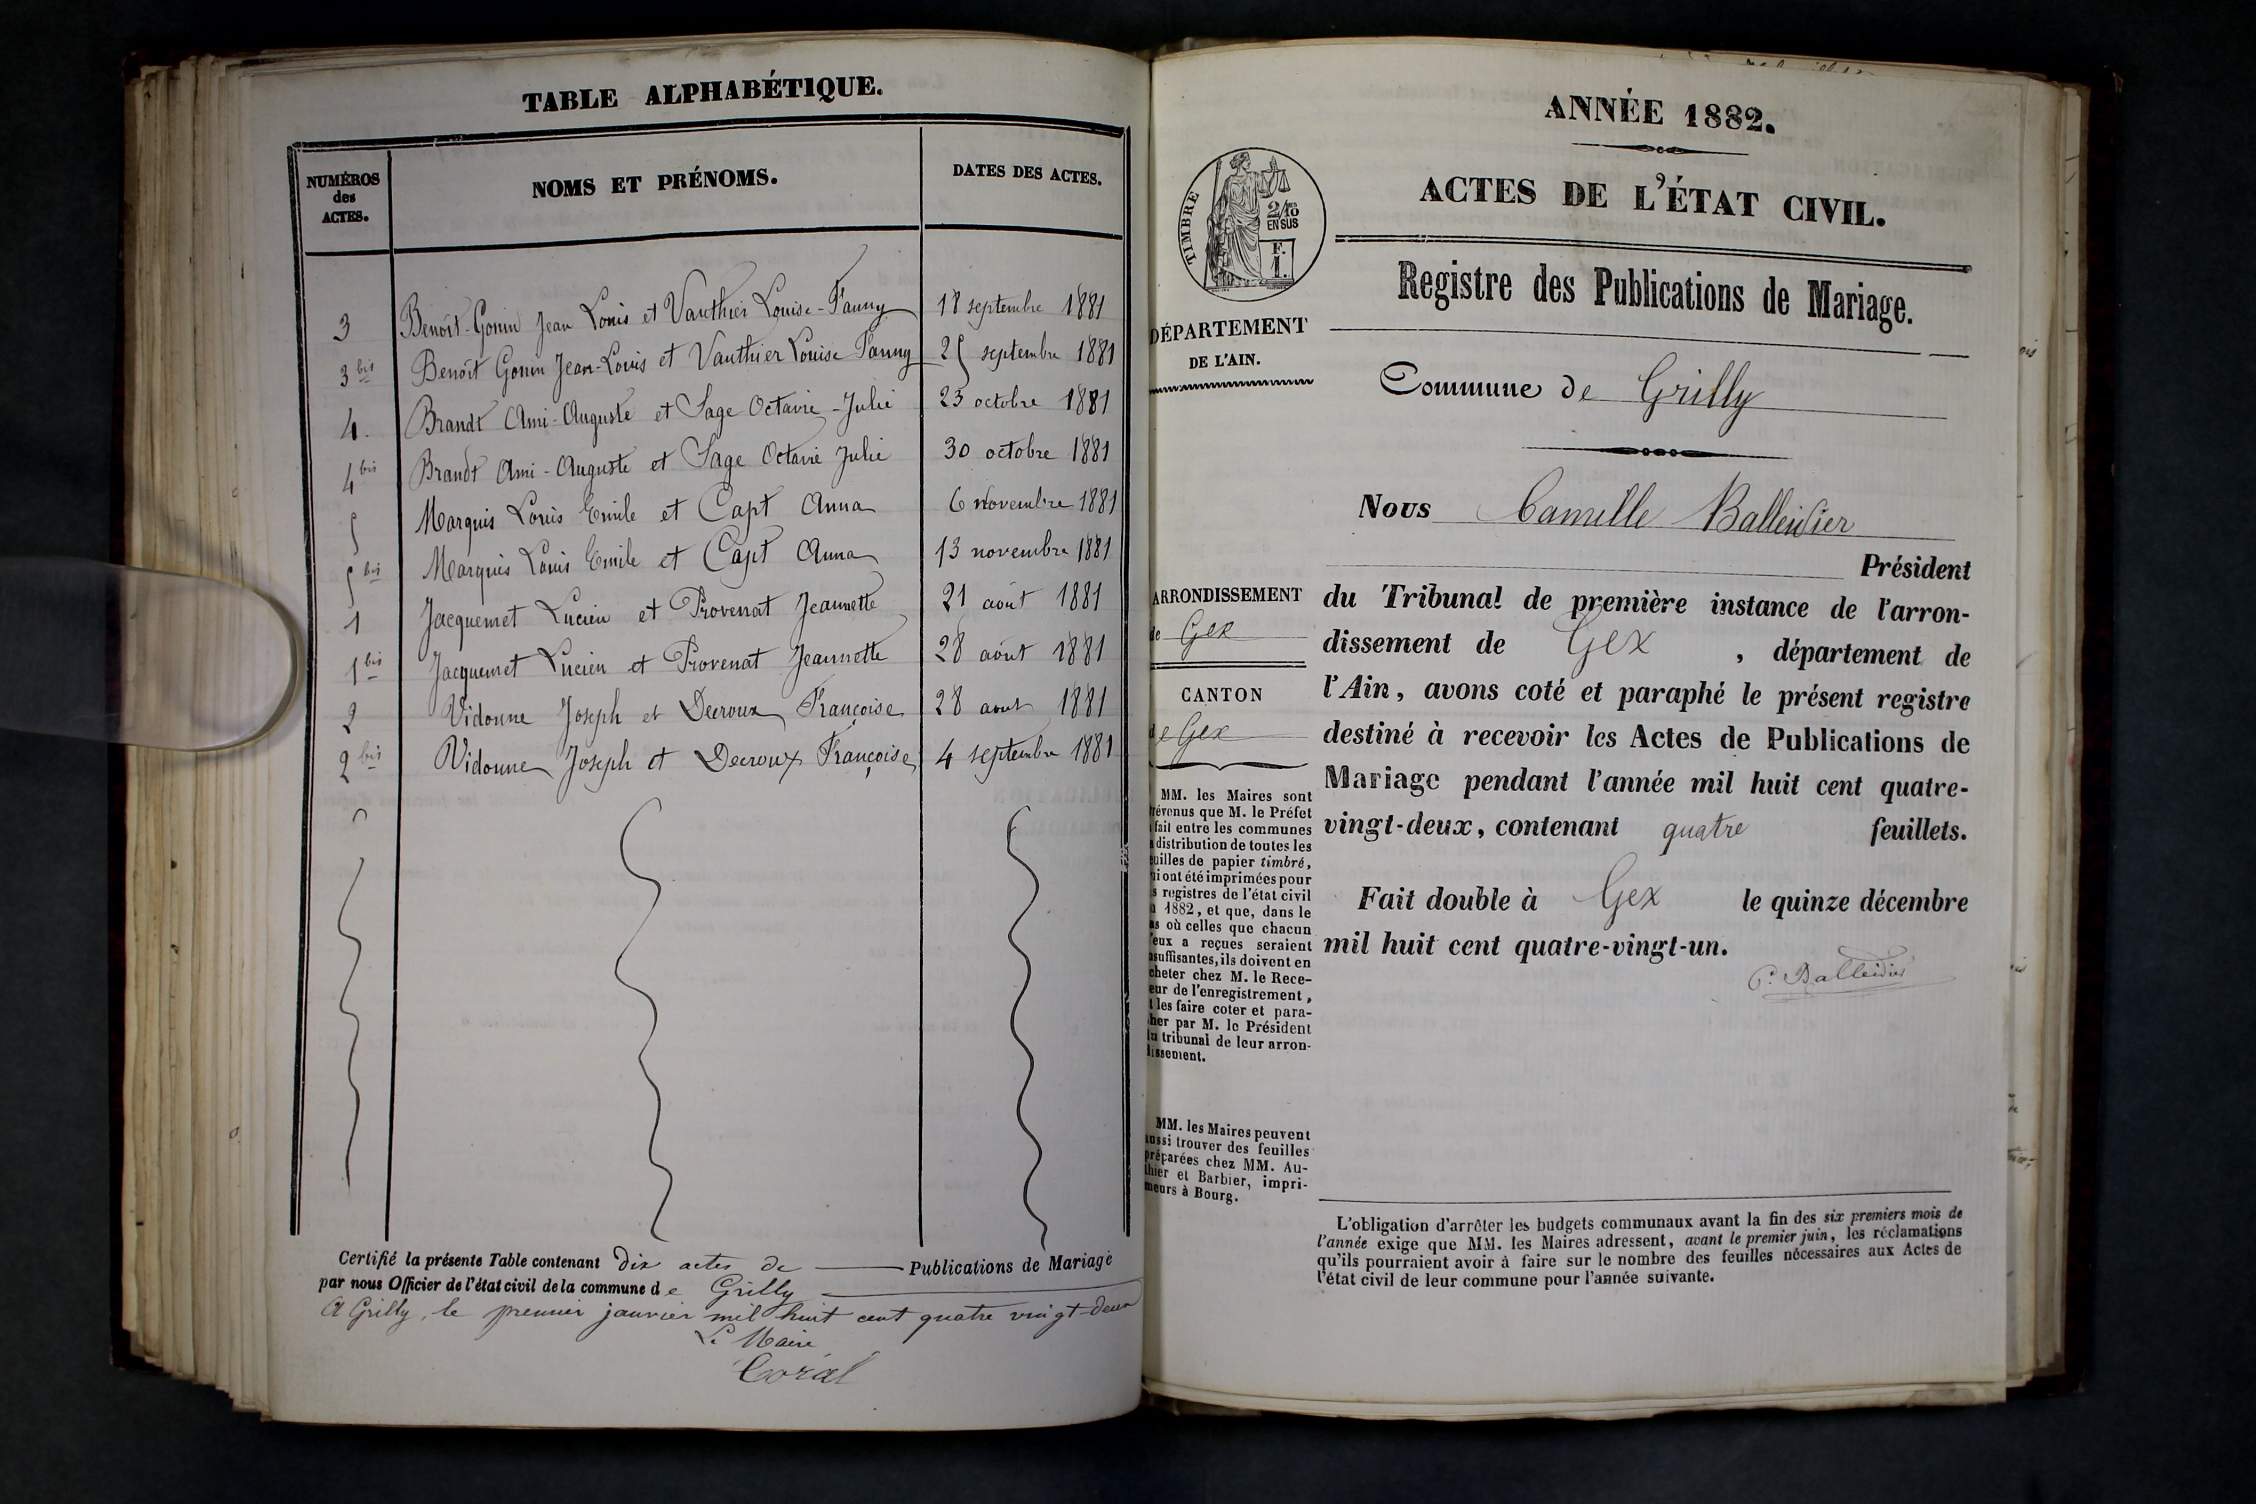 TABLE ALPHABÉTIQUE.
NUMÉROS des ACTES. NOMS ET PRÉNOMS. DATES DES ACTES.
3 Benoît-Gonin Jean Louis et Vauthier Louise-Fanny 18 septembre 1881
3 bis Benoît Gonin Jean-Louis et Vauthier Louise Fanny 25 septembre 1881
4. Brandt Ami-Auguste et Sage Octavie-Julie 23 octobre 1881
4 bis Brandt Ami-Auguste et Sage Octavie Julie 30 octobre 1881
5 Marquis Louis Emile et Capt Anna 6 novembre 1881
5 bis Marquis Louis Emile et Capt Anna 13 novembre 1881
1 Jacquemet Lucien et Provenat Jeannette 21 août 1881
1 bis Jacquemet Lucien et Provenat Jeannette 28 août 1881
2 Vidonne Joseph et Decroux Françoise 28 aout 1881
2 bis Vidonne Joseph et Decroux Françoise 4 septembre 1881
Certifié la présente Table contenant dix actes de Publications de Mariage
par nous Officier de l'état civil de la commune de Grilly
A Grilly, le premier janvier mil huit cent quatre vingt-deux
Le Maire
ANNÉE 1882.
ACTES DE L'ÉTAT CIVIL.
TIMBRE
2/10 EN SUS
F. 1.
Registre des Publications de Mariage.
DÉPARTEMENT
DE L'AIN.
Commune de Grilly
Nous Camille Balleidier
Président
du Tribunal de première instance de l'arron-
dissement de Gex, département de
l'Ain, avons coté et paraphé le présent registre
destiné à recevoir les Actes de Publications de
Mariage pendant l'année mil huit cent quatre-
vingt-deux, contenant quatre feuillets.
Fait double à Gex le quinze décembre
mil huit cent quatre-vingt-un.
C. Balleidier
ARRONDISSEMENT
de Gex
CANTON
de Gex
MM. les Maires sont
prévenus que M. le Préfet
fait entre les communes
distribution de toutes les
feuilles de papier timbré,
qui ont été imprimées pour
les registres de l'état civil
1882, et que, dans le
cas où celles que chacun
d'eux a reçues seraient
insuffisantes, ils doivent en
acheter chez M. le Rece-
veur de l'enregistrement,
les faire coter et para-
pher par M. le Président
du tribunal de leur arron-
dissement.
MM. les Maires peuvent
aussi trouver des feuilles
préparées chez MM. Au-
thier et Barbier, impri-
meurs à Bourg.
L'obligation d'arrêter les budgets communaux avant la fin des six premiers mois de
l'année exige que MM. les Maires adressent, avant le premier juin, les réclamations
qu'ils pourraient avoir à faire sur le nombre des feuilles nécessaires aux Actes de
l'état civil de leur commune pour l'année suivante.